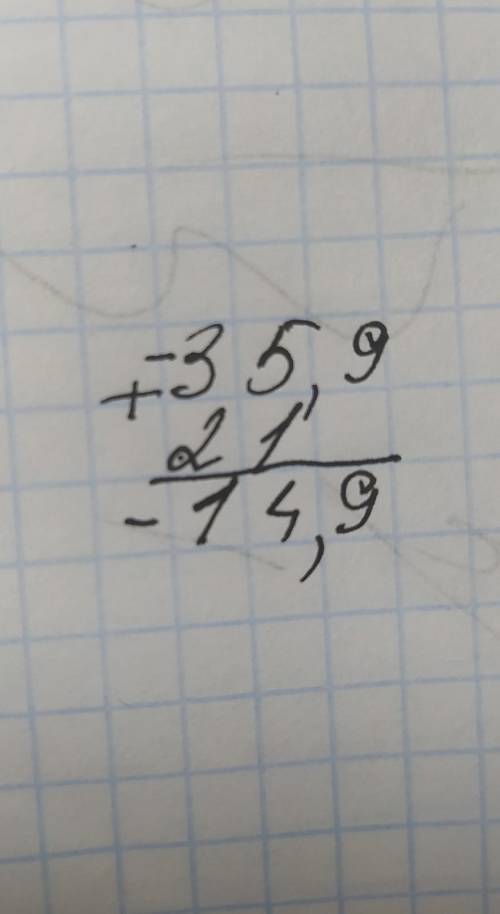 -35,9
+
21
-14,9